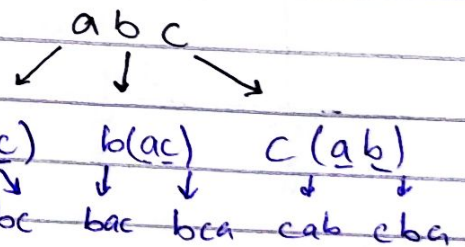 a b c
c) b(ac) c (ab)
bc bac bca cab cba